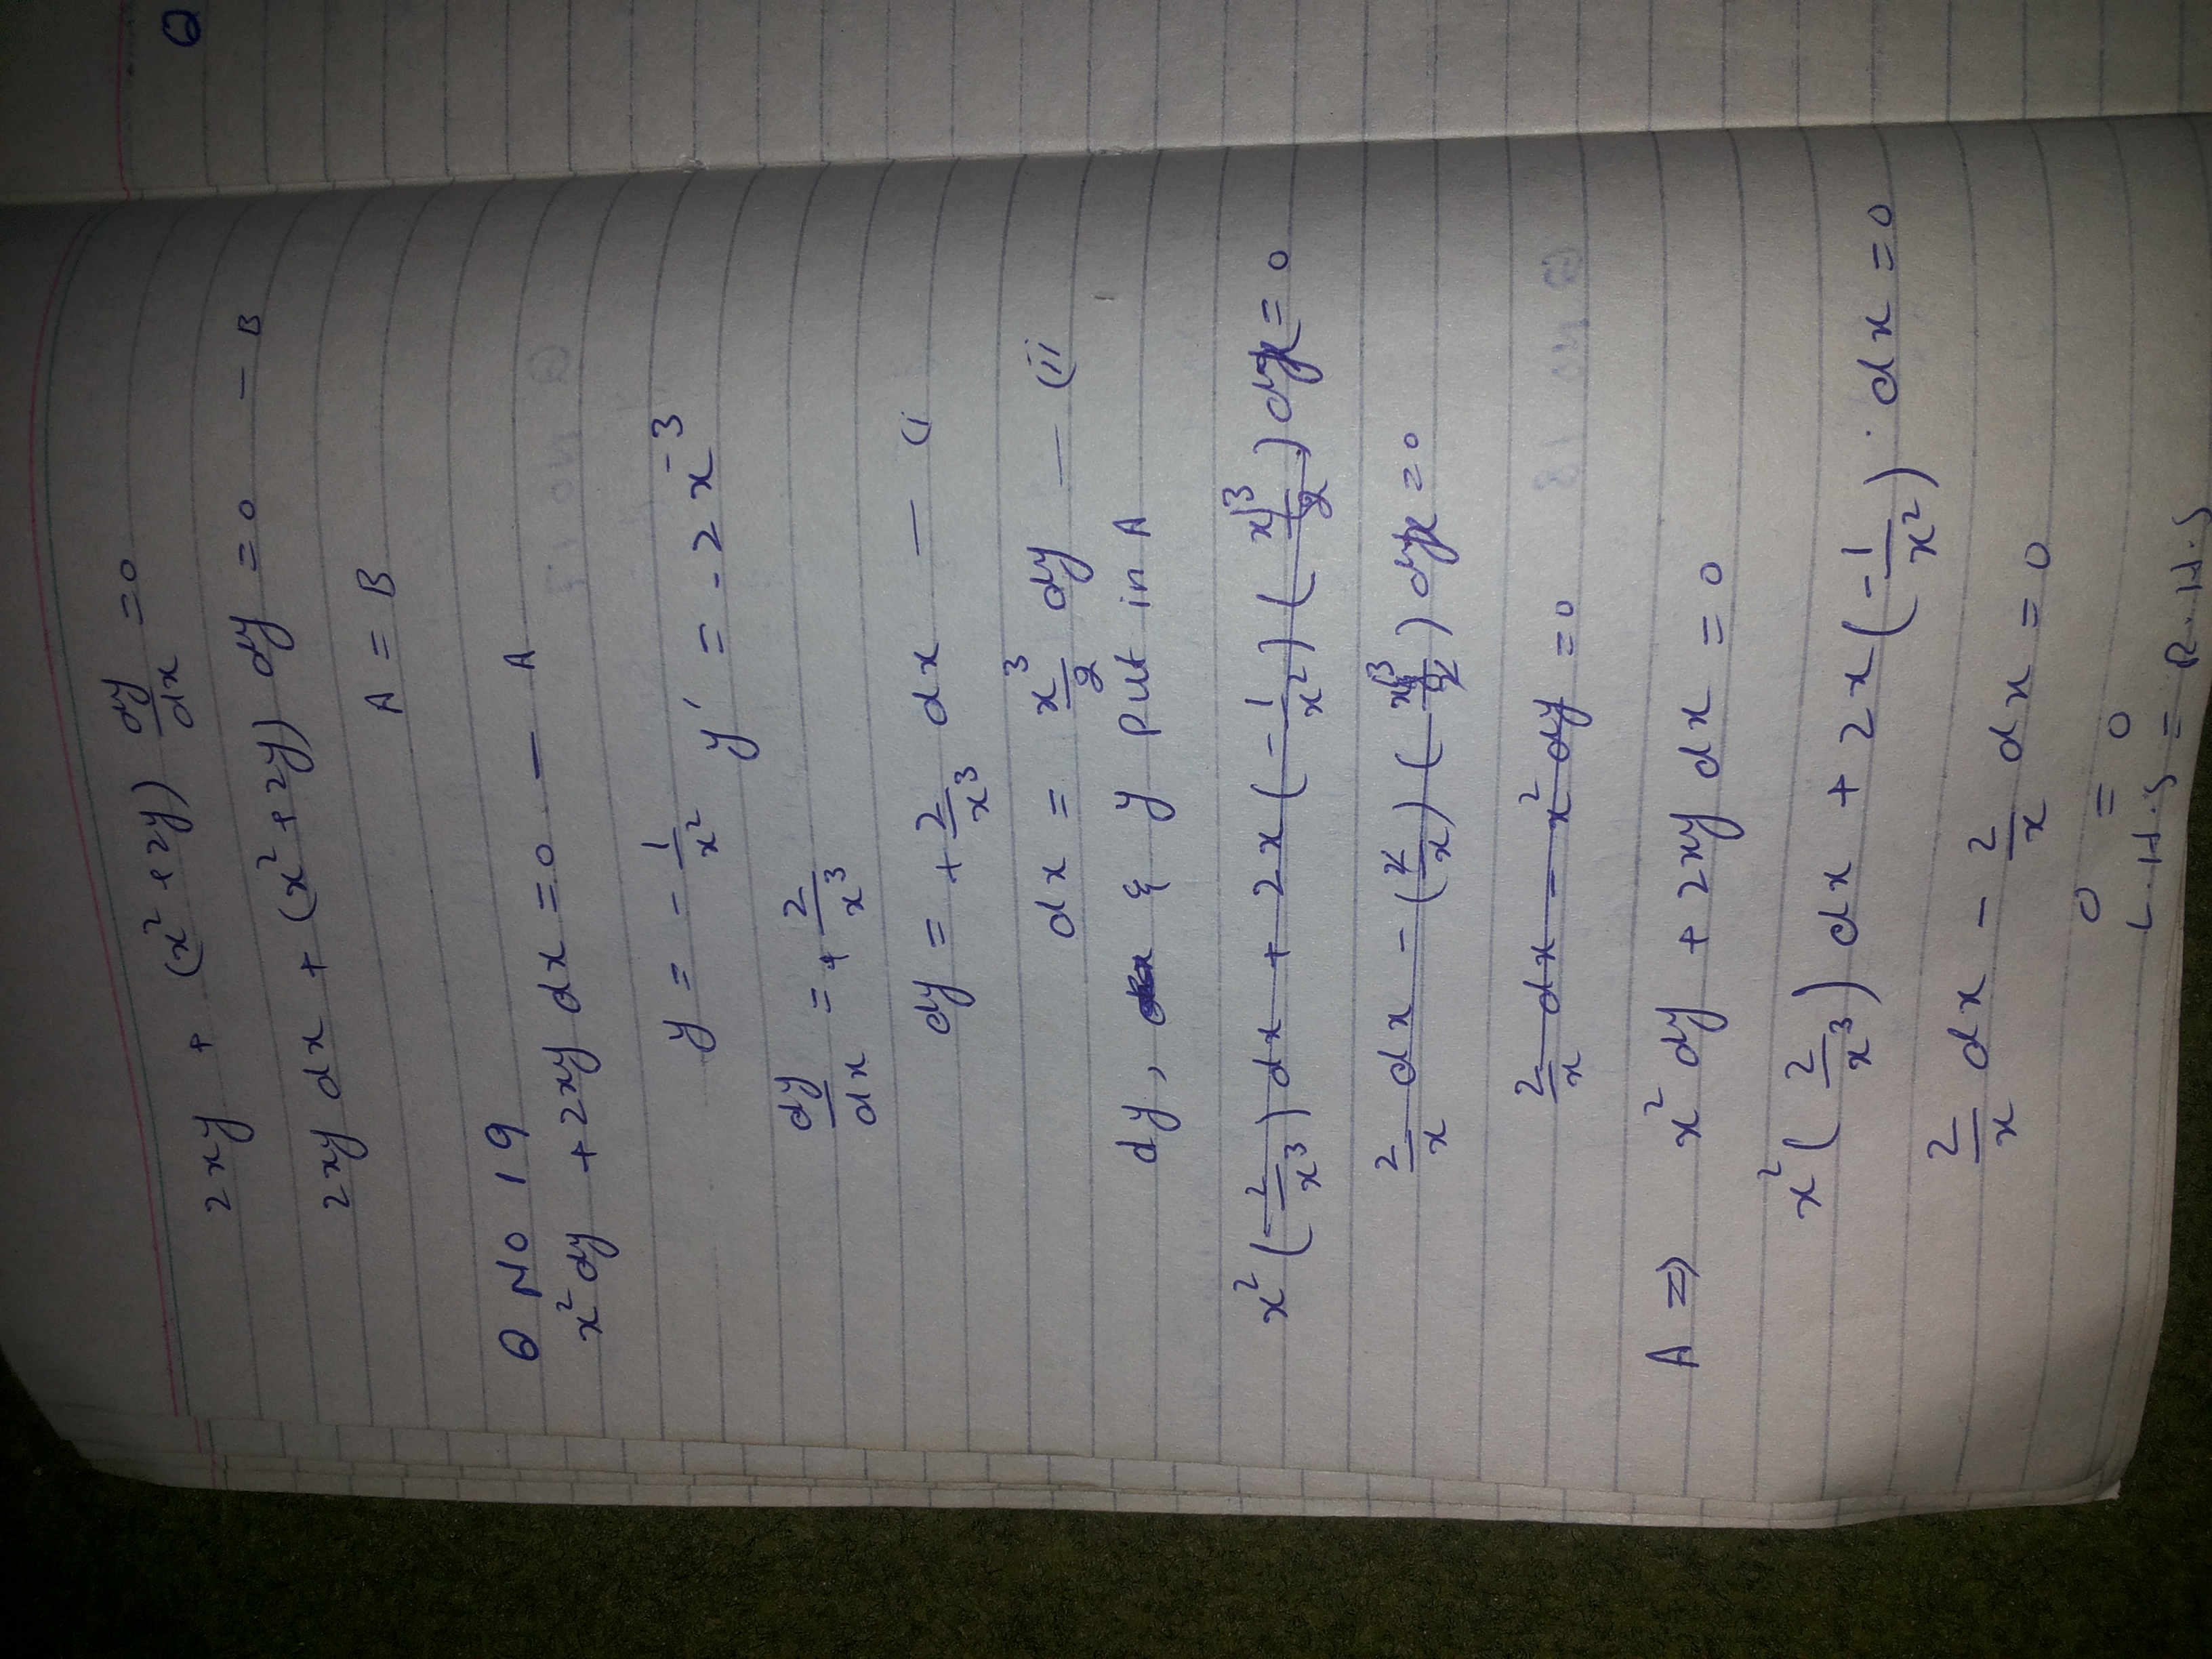 2xy + (x² + 2y) dy/dx = 0
2xy dx + (x² + 2y) dy = 0 — B
A = B
Q No 19
x² dy + 2xy dx = 0 — A
y = - 1/x² y' = -2x⁻³
dy/dx = + 2/x³
dy = + 2/x³ dx — (i
dx = x³/2 dy — (ii
dy, & y put in A
x² (2/x³) dx + 2x (-1/x²) (x³/2) dx = 0
2/x dx - (2/x) (x³/2) dx = 0
2/x dx - x² dy = 0
A ⇒ x² dy + 2xy dx = 0
x² (2/x³) dx + 2x (-1/x²) · dx = 0
2/x dx - 2/x dx = 0
0 = 0
L.H.S = R.H.S
Q